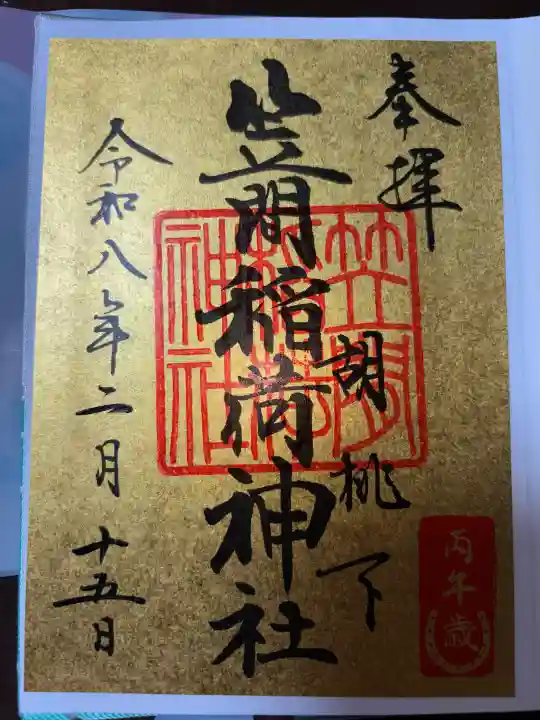 奉拝
胡桃下
笠間稲荷神社
令和八年二月十五日
笠間
稲荷
神社
丙午歳